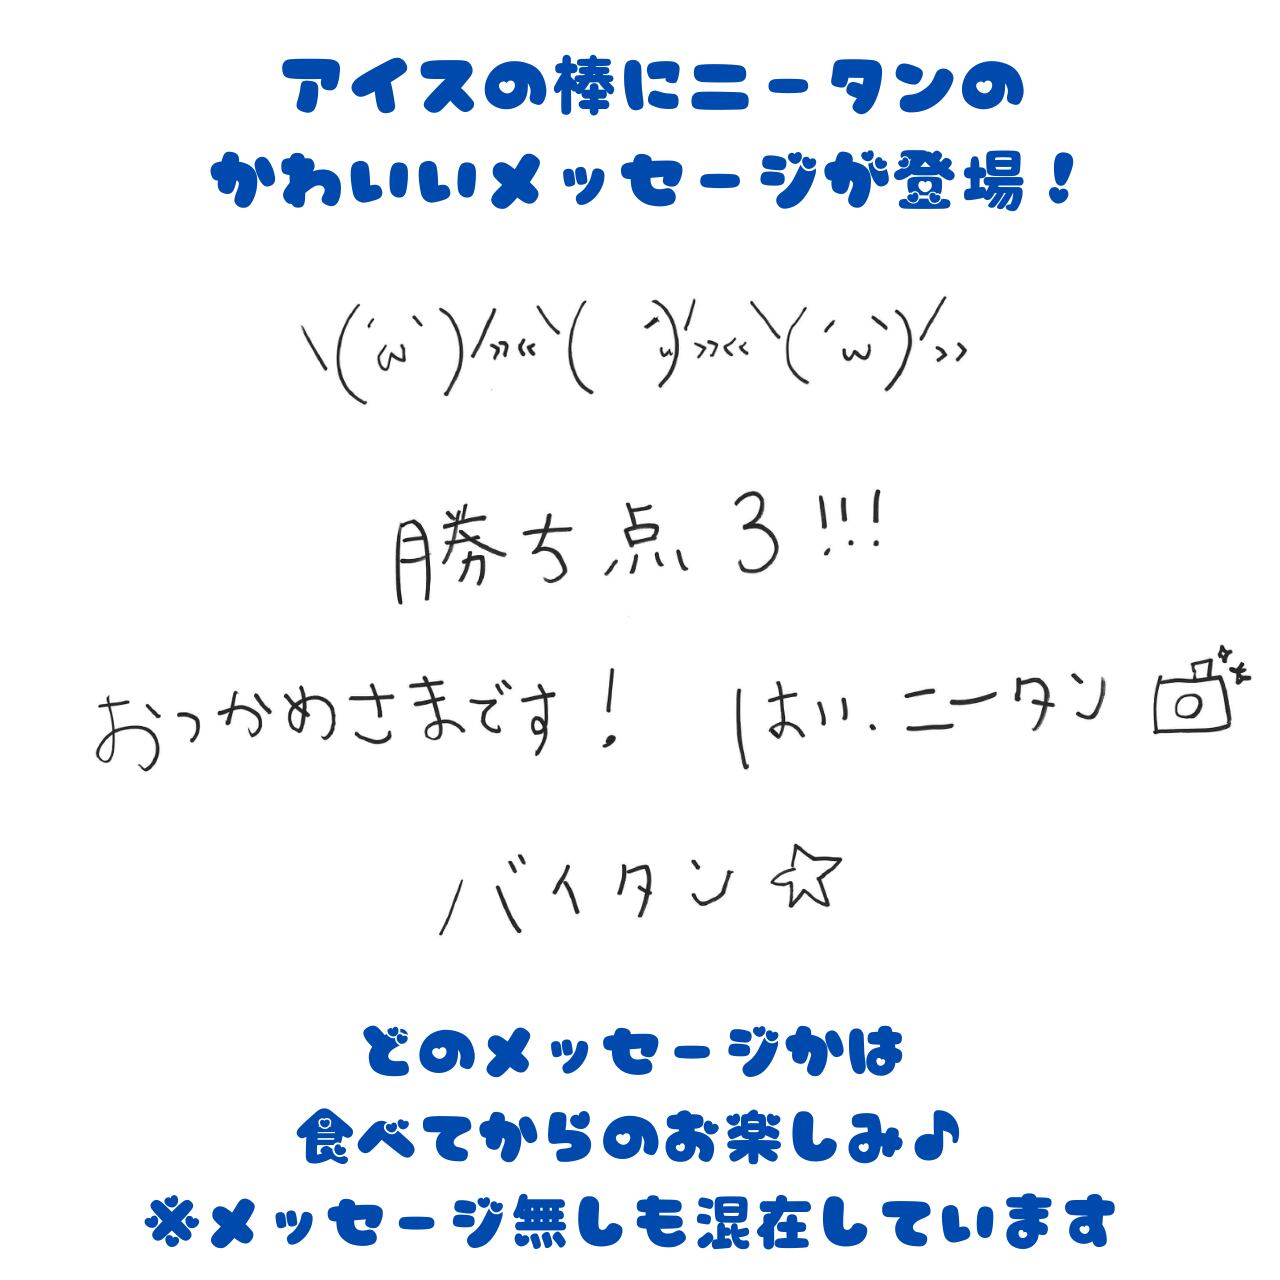 アイスの棒にニータンの
かわいいメッセージが登場！
\( 'ω` )/>><<\(   'ω)/>><<\( 'ω` )/>>
勝ち点3!!!
おっかめさまです！ はい、ニータン
バイタン☆
どのメッセージかは
食べてからのお楽しみ♪
※メッセージ無しも混在しています